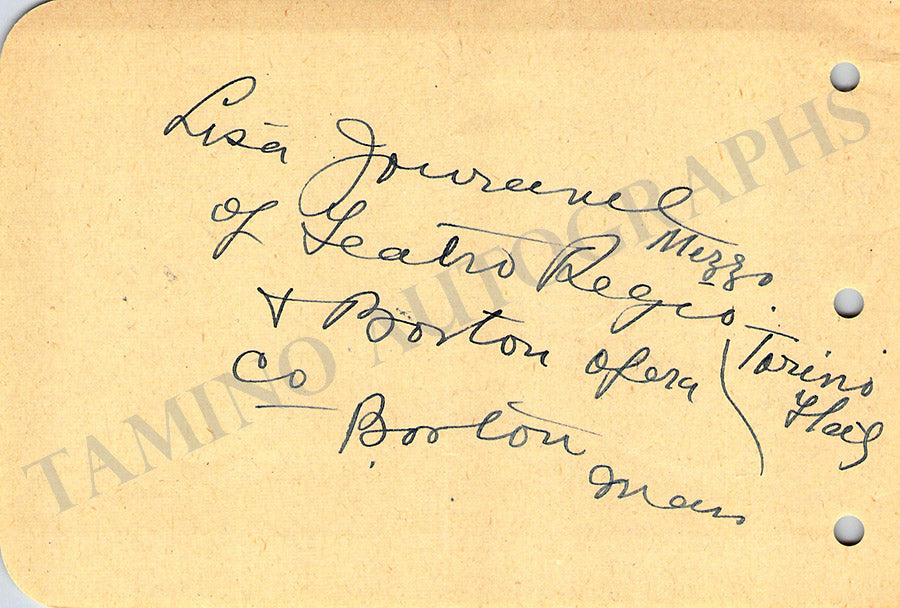 Lisa Jouranel
Mezzo
of Teatro Regio
Torino
Italy
+ Boston Opera
Co
Boston
Mass
TAMINO AUTOGRAPHS